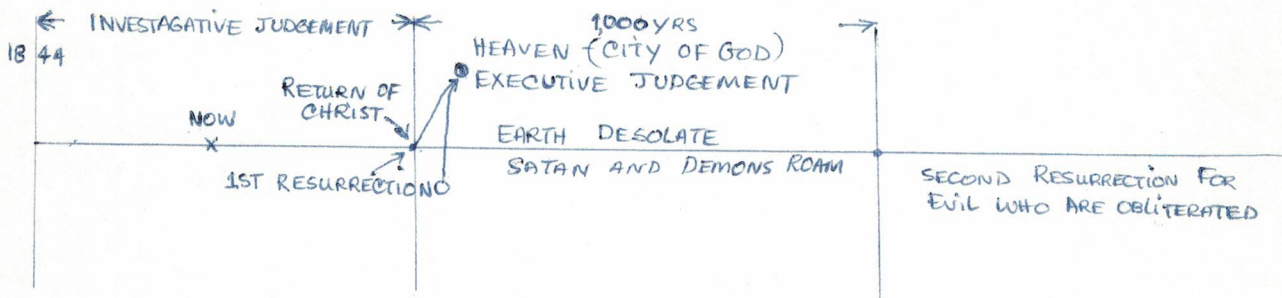 INVESTAGATIVE JUDGEMENT
1,000 YRS
1844
HEAVEN (CITY OF GOD)
EXECUTIVE JUDGEMENT
RETURN OF
CHRIST
NOW
EARTH DESOLATE
1ST RESURRECTION
SATAN AND DEMONS ROAM
SECOND RESURRECTION FOR
EVIL WHO ARE OBLITERATED